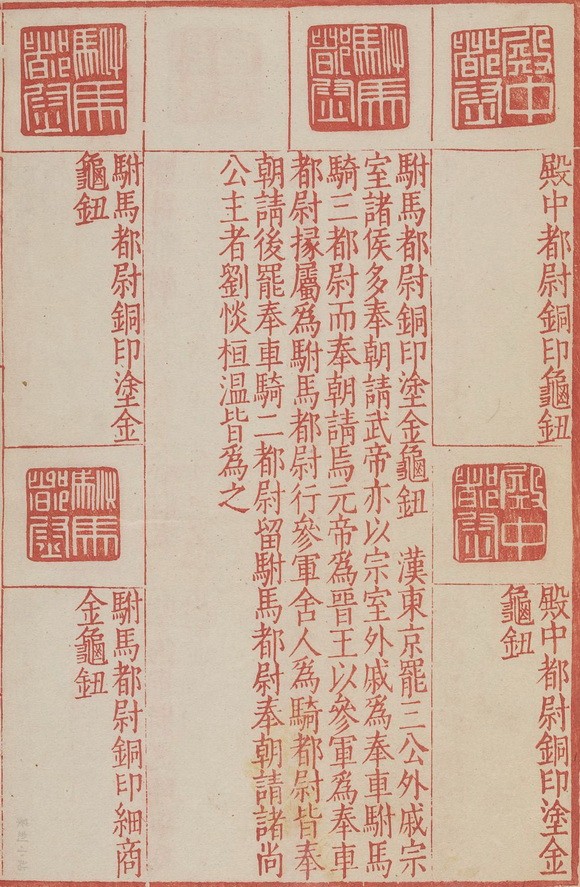 殿中
都尉
殿中都尉銅印龜鈕
殿中
都尉
殿中都尉銅印塗金
龜鈕
駙馬
都尉
駙馬都尉銅印塗金龜鈕　漢東京罷三公外戚宗
室諸侯多奉朝請武帝亦以宗室外戚爲奉車駙馬
騎三都尉而奉朝請焉元帝爲晉王以參軍爲奉車
都尉掾屬爲駙馬都尉行參軍舍人爲騎都尉皆奉
朝請後罷奉車騎二都尉留駙馬都尉奉朝請諸尚
公主者劉惔桓温皆爲之
駙馬
都尉
駙馬都尉銅印塗金
龜鈕
駙馬
都尉
駙馬都尉銅印細商
金龜鈕